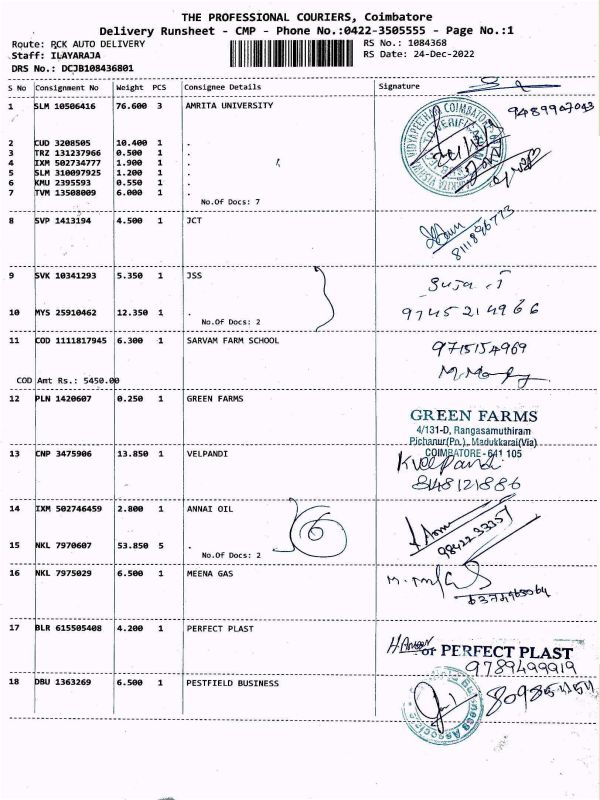 THE PROFESSIONAL COURIERS, Coimbatore
Delivery Runsheet - CMP - Phone No.:0422-3505555 - Page No.:1
Route: PCK AUTO DELIVERY
RS No.: 1084368
Staff: ILAYARAJA
RS Date: 24-Dec-2022
DRS No.: DCJB108436801
S No Consignment No Weight PCS Consignee Details Signature
1 SLM 10506416 76.600 3 AMRITA UNIVERSITY
9489907043
2 CUD 3208505 10.400 1 .
3 TRZ 131237966 0.500 1 .
4 IXM 502734777 1.900 1 .
5 SLM 310097925 1.200 1 .
6 KMU 2395593 0.550 1 .
7 TVM 13508009 6.000 1 .
No.Of Docs: 7
8 SVP 1413194 4.500 1 JCT
8111896773
9 SVK 10341293 5.350 1 JSS
9745214966
10 MYS 25910462 12.350 1 .
No.Of Docs: 2
11 COD 1111817945 6.300 1 SARVAM FARM SCHOOL
9715154969
COD Amt Rs.: 5450.00
12 PLN 1420607 0.250 1 GREEN FARMS
GREEN FARMS
4/131-D, Rangasamuthiram
Pichanur(Po.), Madukkarai(Via)
COIMBATORE-641 105
13 CNP 3475906 13.850 1 VELPANDI
K.velpandi
8148121886
14 IXM 502746459 2.800 1 ANNAI OIL
6
15 NKL 7970607 53.850 5 .
No.Of Docs: 2
16 NKL 7975029 6.500 1 MEENA GAS
17 BLR 615505408 4.200 1 PERFECT PLAST
or PERFECT PLAST
9789499919
18 DBU 1363269 6.500 1 PESTFIELD BUSINESS